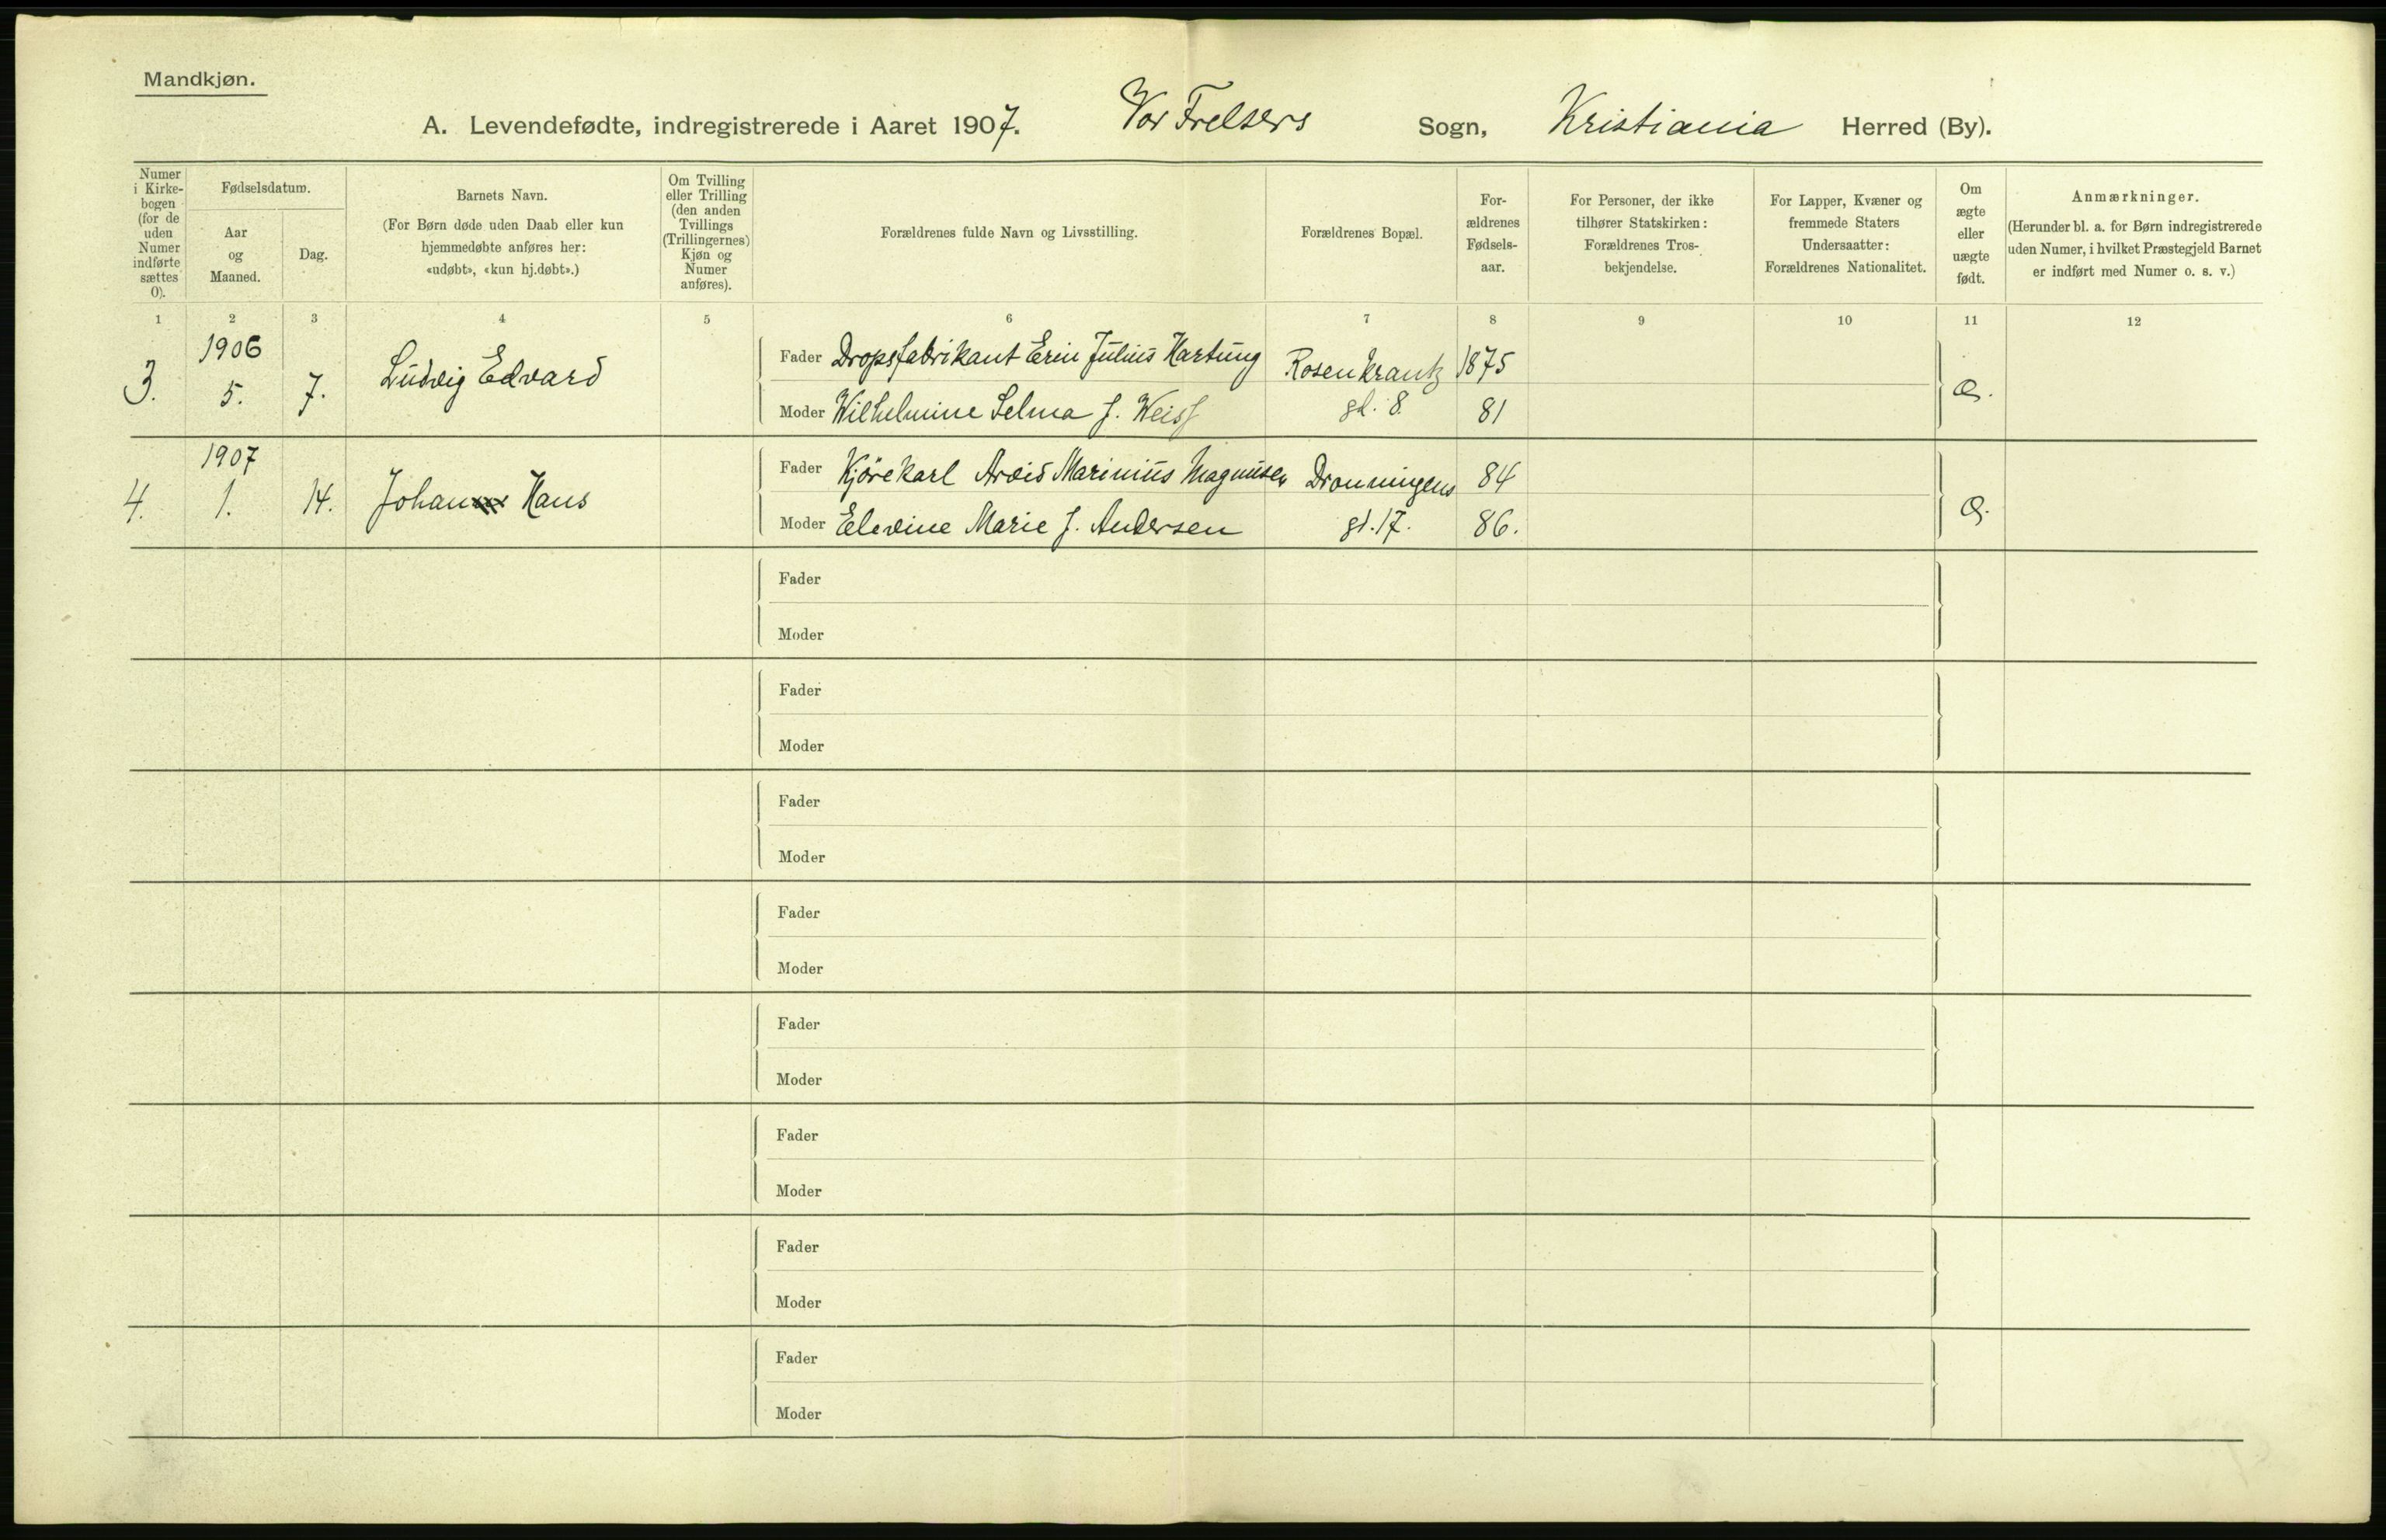 Mandkjøn.
A. Levendefødte, indregistrerede i Aaret 1907. Vor Frelsers Sogn, Kristiania Herred (By).
Numer i Kirke-bogen (for de uden Numer indførte sættes 0).
Fødselsdatum.
Aar og Maaned.
Dag.
Barnets Navn.
(For Børn døde uden Daab eller kun hjemmedøbte anføres her: «udøbt», «kun hj.døbt».)
Om Tvilling eller Trilling (den anden Tvillings (Trillingernes) Kjøn og Numer anføres).
Forældrenes fulde Navn og Livsstilling.
Forældrenes Bopæl.
For-ældrenes Fødsels-aar.
For Personer, der ikke tilhører Statskirken: Forældrenes Tros-bekjendelse.
For Lapper, Kvæner og fremmede Staters Undersaatter: Forældrenes Nationalitet.
Om ægte eller uægte født.
Anmærkninger.
(Herunder bl. a. for Børn indregistrerede uden Numer, i hvilket Præstegjeld Barnet er indført med Numer o. s. v.)
1 2 3 4 5 6 7 8 9 10 11 12
1906
3. 5. 7. Ludvig Edvard
Fader Dropsfabrikant Julius Hartung Rosenkrantz 1875
Moder Wilhelmine Selma f. Weiss gd. 8. 81
1907
4. 1. 14. Johan Hans
Fader Kjørekarl Arvid Marinius Magnusen Dronningens 84
Moder Elevine Marie f. Andersen gd. 17. 86.
Fader
Moder
Fader
Moder
Fader
Moder
Fader
Moder
Fader
Moder
Fader
Moder
Fader
Moder
Fader
Moder